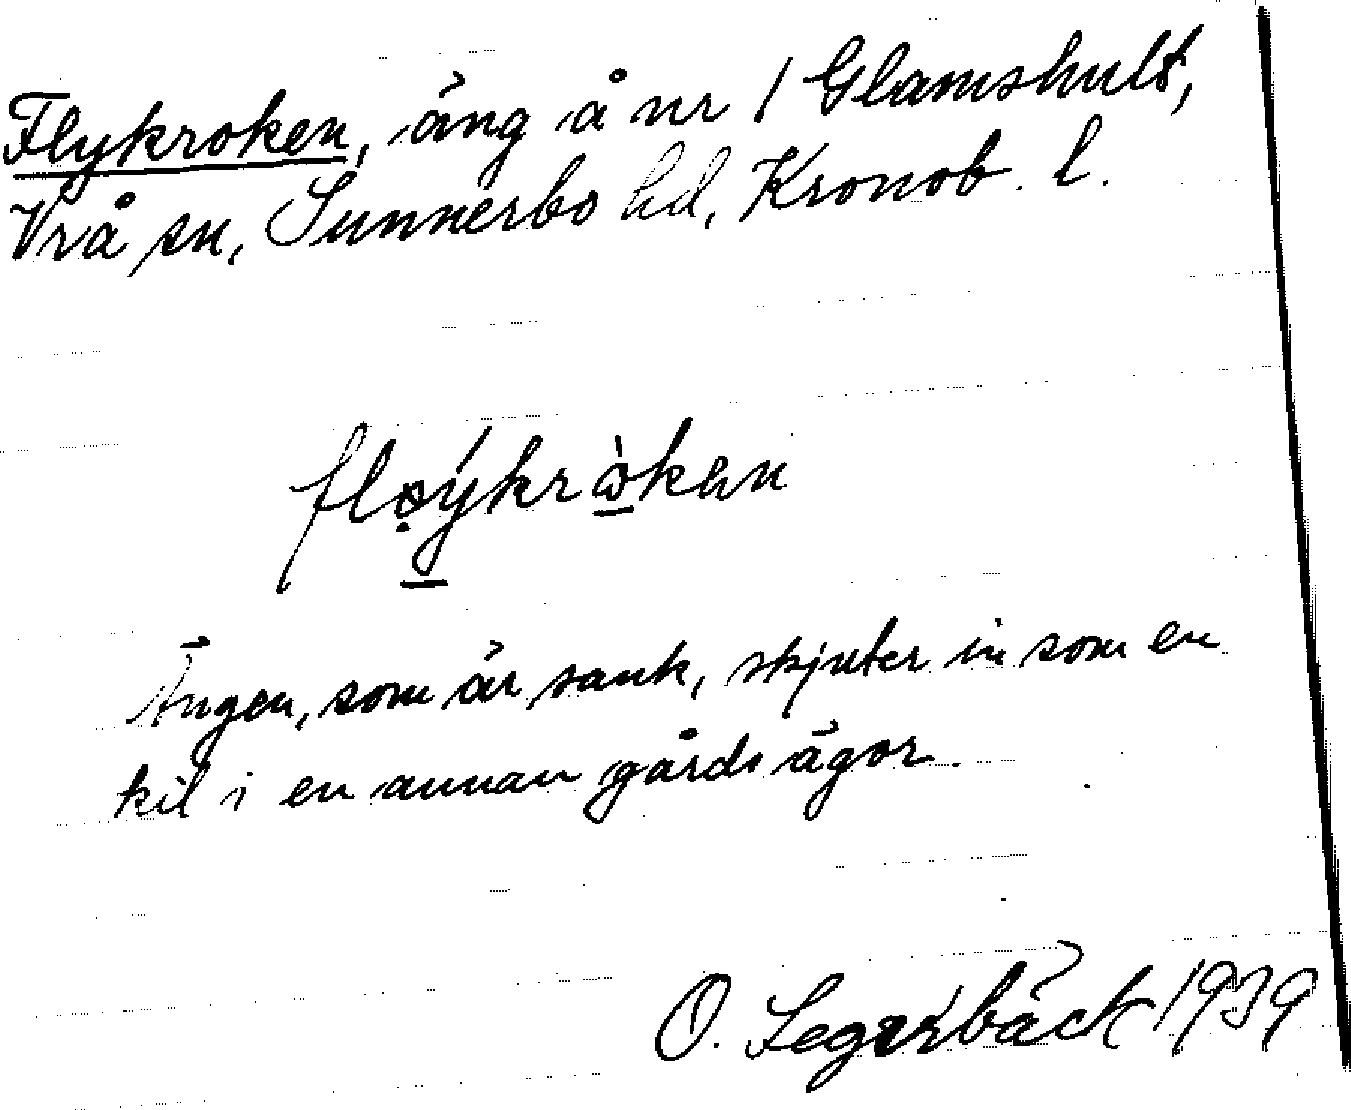 Flykroken, äng å nr 1 Glamshult,
Vrå sn, Sunnerbo hd, Kronob. l.
fløýkrὼkan
Ängen, som är sank, skjuter in som en
kil i en annan gårds ägor.
O. Segerbäck 1939